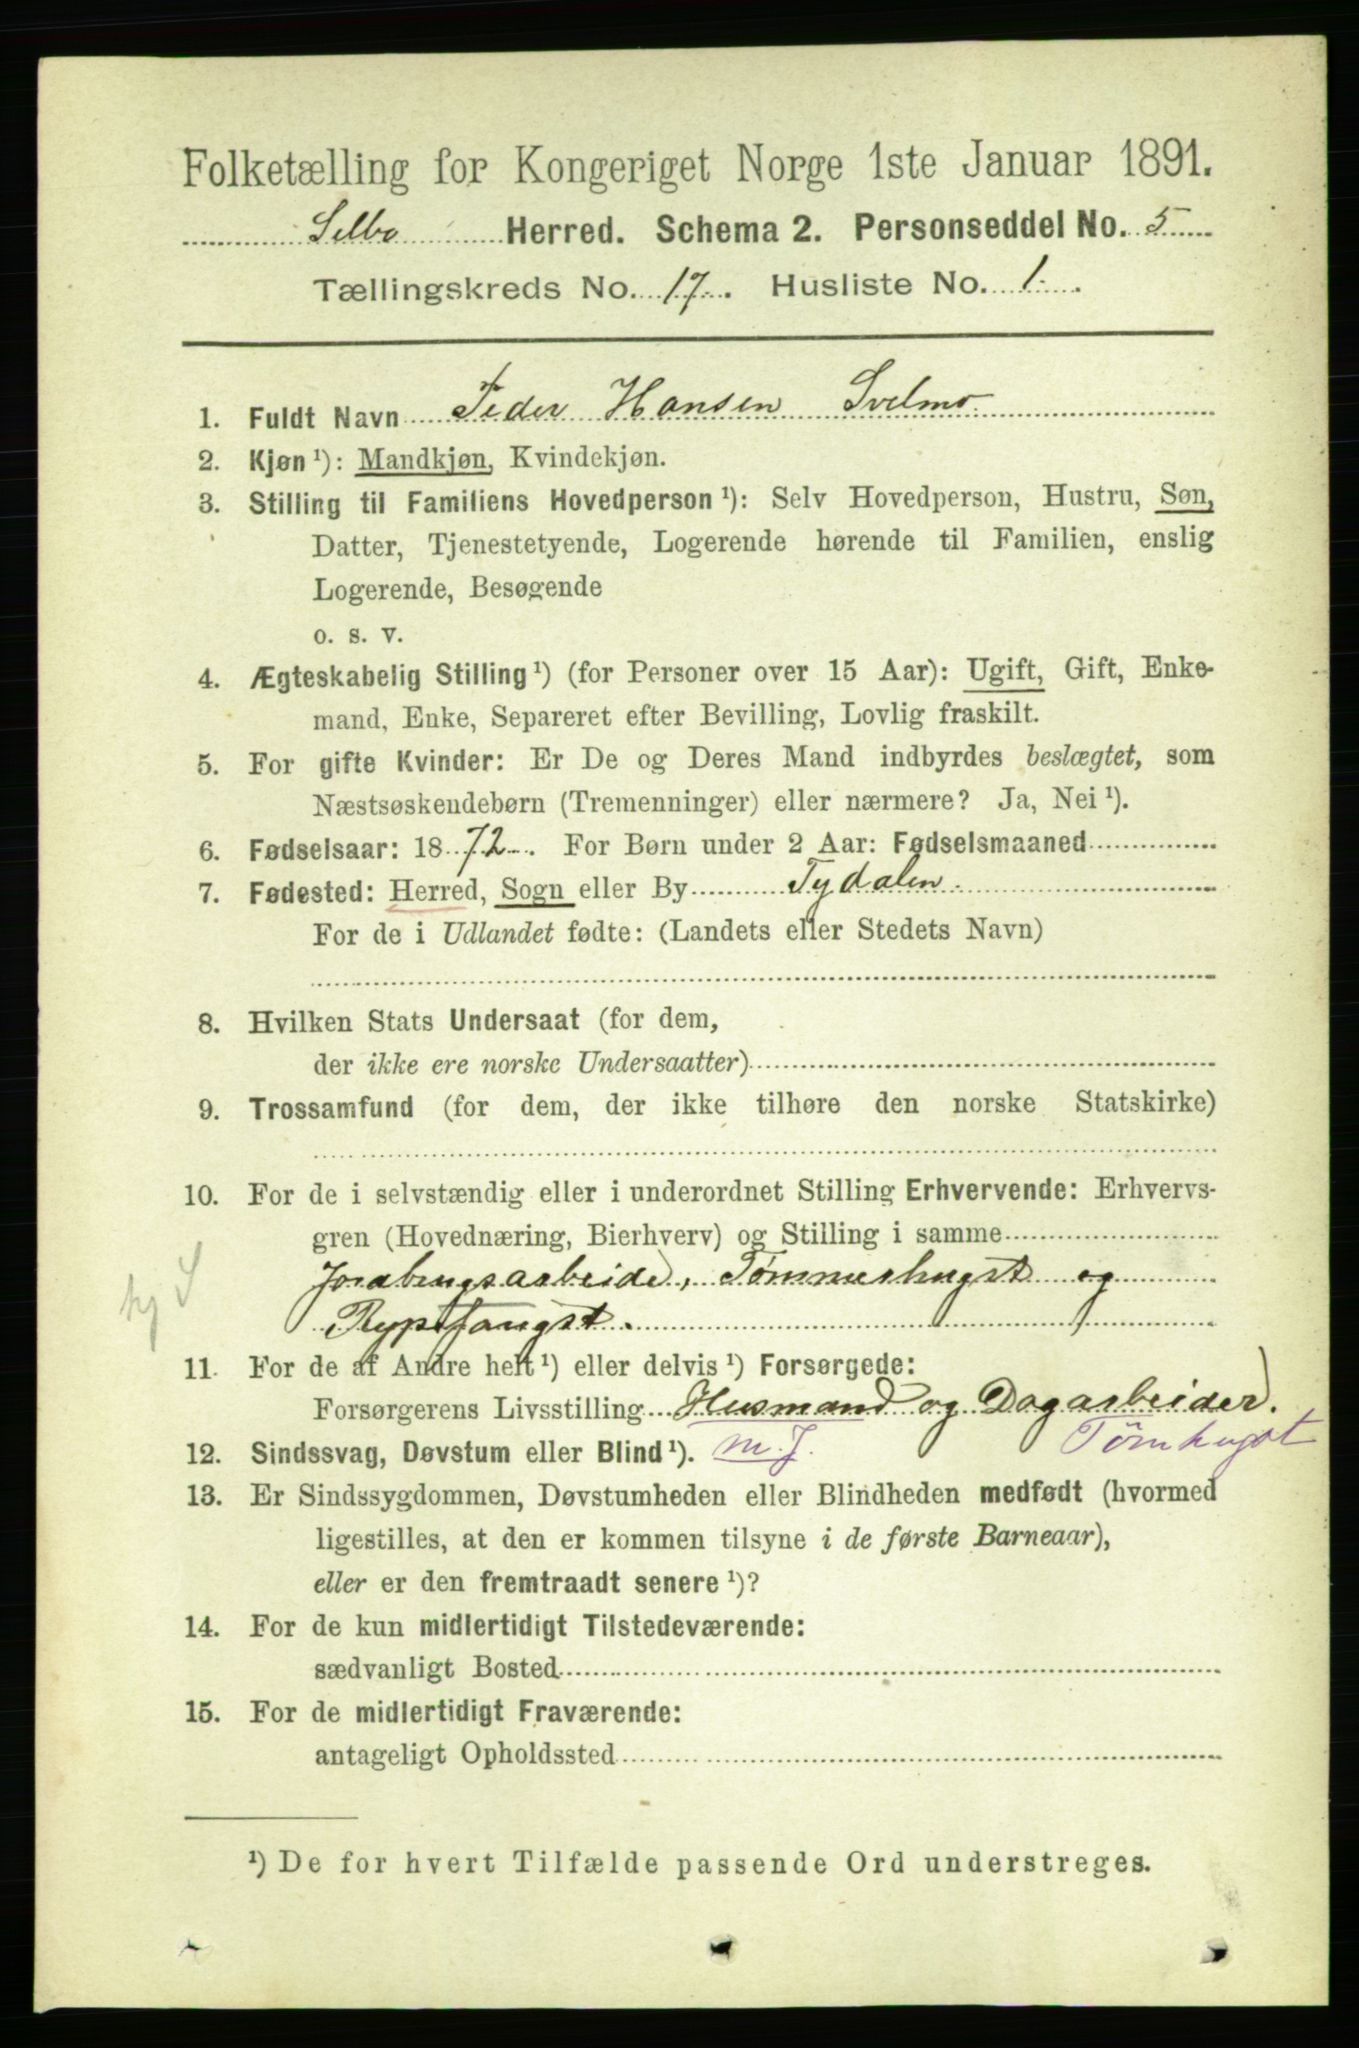 Folketælling for Kongeriget Norge 1ste Januar 1891.
Selbo Herred. Schema 2. Personseddel No. 5
Tællingskreds No. 17. Husliste No. 1.
1. Fuldt Navn Peder Hansen Svelmo
2. Kjøn ¹): Mandkjøn, Kvindekjøn.
3. Stilling til Familiens Hovedperson ¹): Selv Hovedperson, Hustru, Søn,
Datter, Tjenestetyende, Logerende hørende til Familien, enslig
Logerende, Besøgende
o. s. v.
4. Ægteskabelig Stilling ¹) (for Personer over 15 Aar): Ugift, Gift, Enke-
mand, Enke, Separeret efter Bevilling, Lovlig fraskilt.
5. For gifte Kvinder: Er De og Deres Mand indbyrdes beslægtet, som
Næstsøskendebørn (Tremenninger) eller nærmere? Ja, Nei ¹).
6. Fødselsaar: 1872. For Børn under 2 Aar: Fødselsmaaned
7. Fødested: Herred, Sogn eller By Tydalen.
For de i Udlandet fødte: (Landets eller Stedets Navn)
8. Hvilken Stats Undersaat (for dem,
der ikke ere norske Undersaatter)
9. Trossamfund (for dem, der ikke tilhøre den norske Statskirke)
10. For de i selvstændig eller i underordnet Stilling Erhvervende: Erhvervs-
gren (Hovednæring, Bierhverv) og Stilling i samme
Jordbrugsarbeide, Tømmerhugst og
hj S
Rypefangst.
11. For de af Andre helt ¹) eller delvis ¹) Forsørgede:
Forsørgerens Livsstilling Husmand og Dagarbeider.
12. Sindssvag, Døvstum eller Blind ¹). m.J. Tømhugst
13. Er Sindssygdommen, Døvstumheden eller Blindheden medfødt (hvormed
ligestilles, at den er kommen tilsyne i de første Barneaar),
eller er den fremtraadt senere ¹)?
14. For de kun midlertidigt Tilstedeværende:
sædvanligt Bosted
15. For de midlertidigt Fraværende:
antageligt Opholdssted
¹) De for hvert Tilfælde passende Ord understreges.